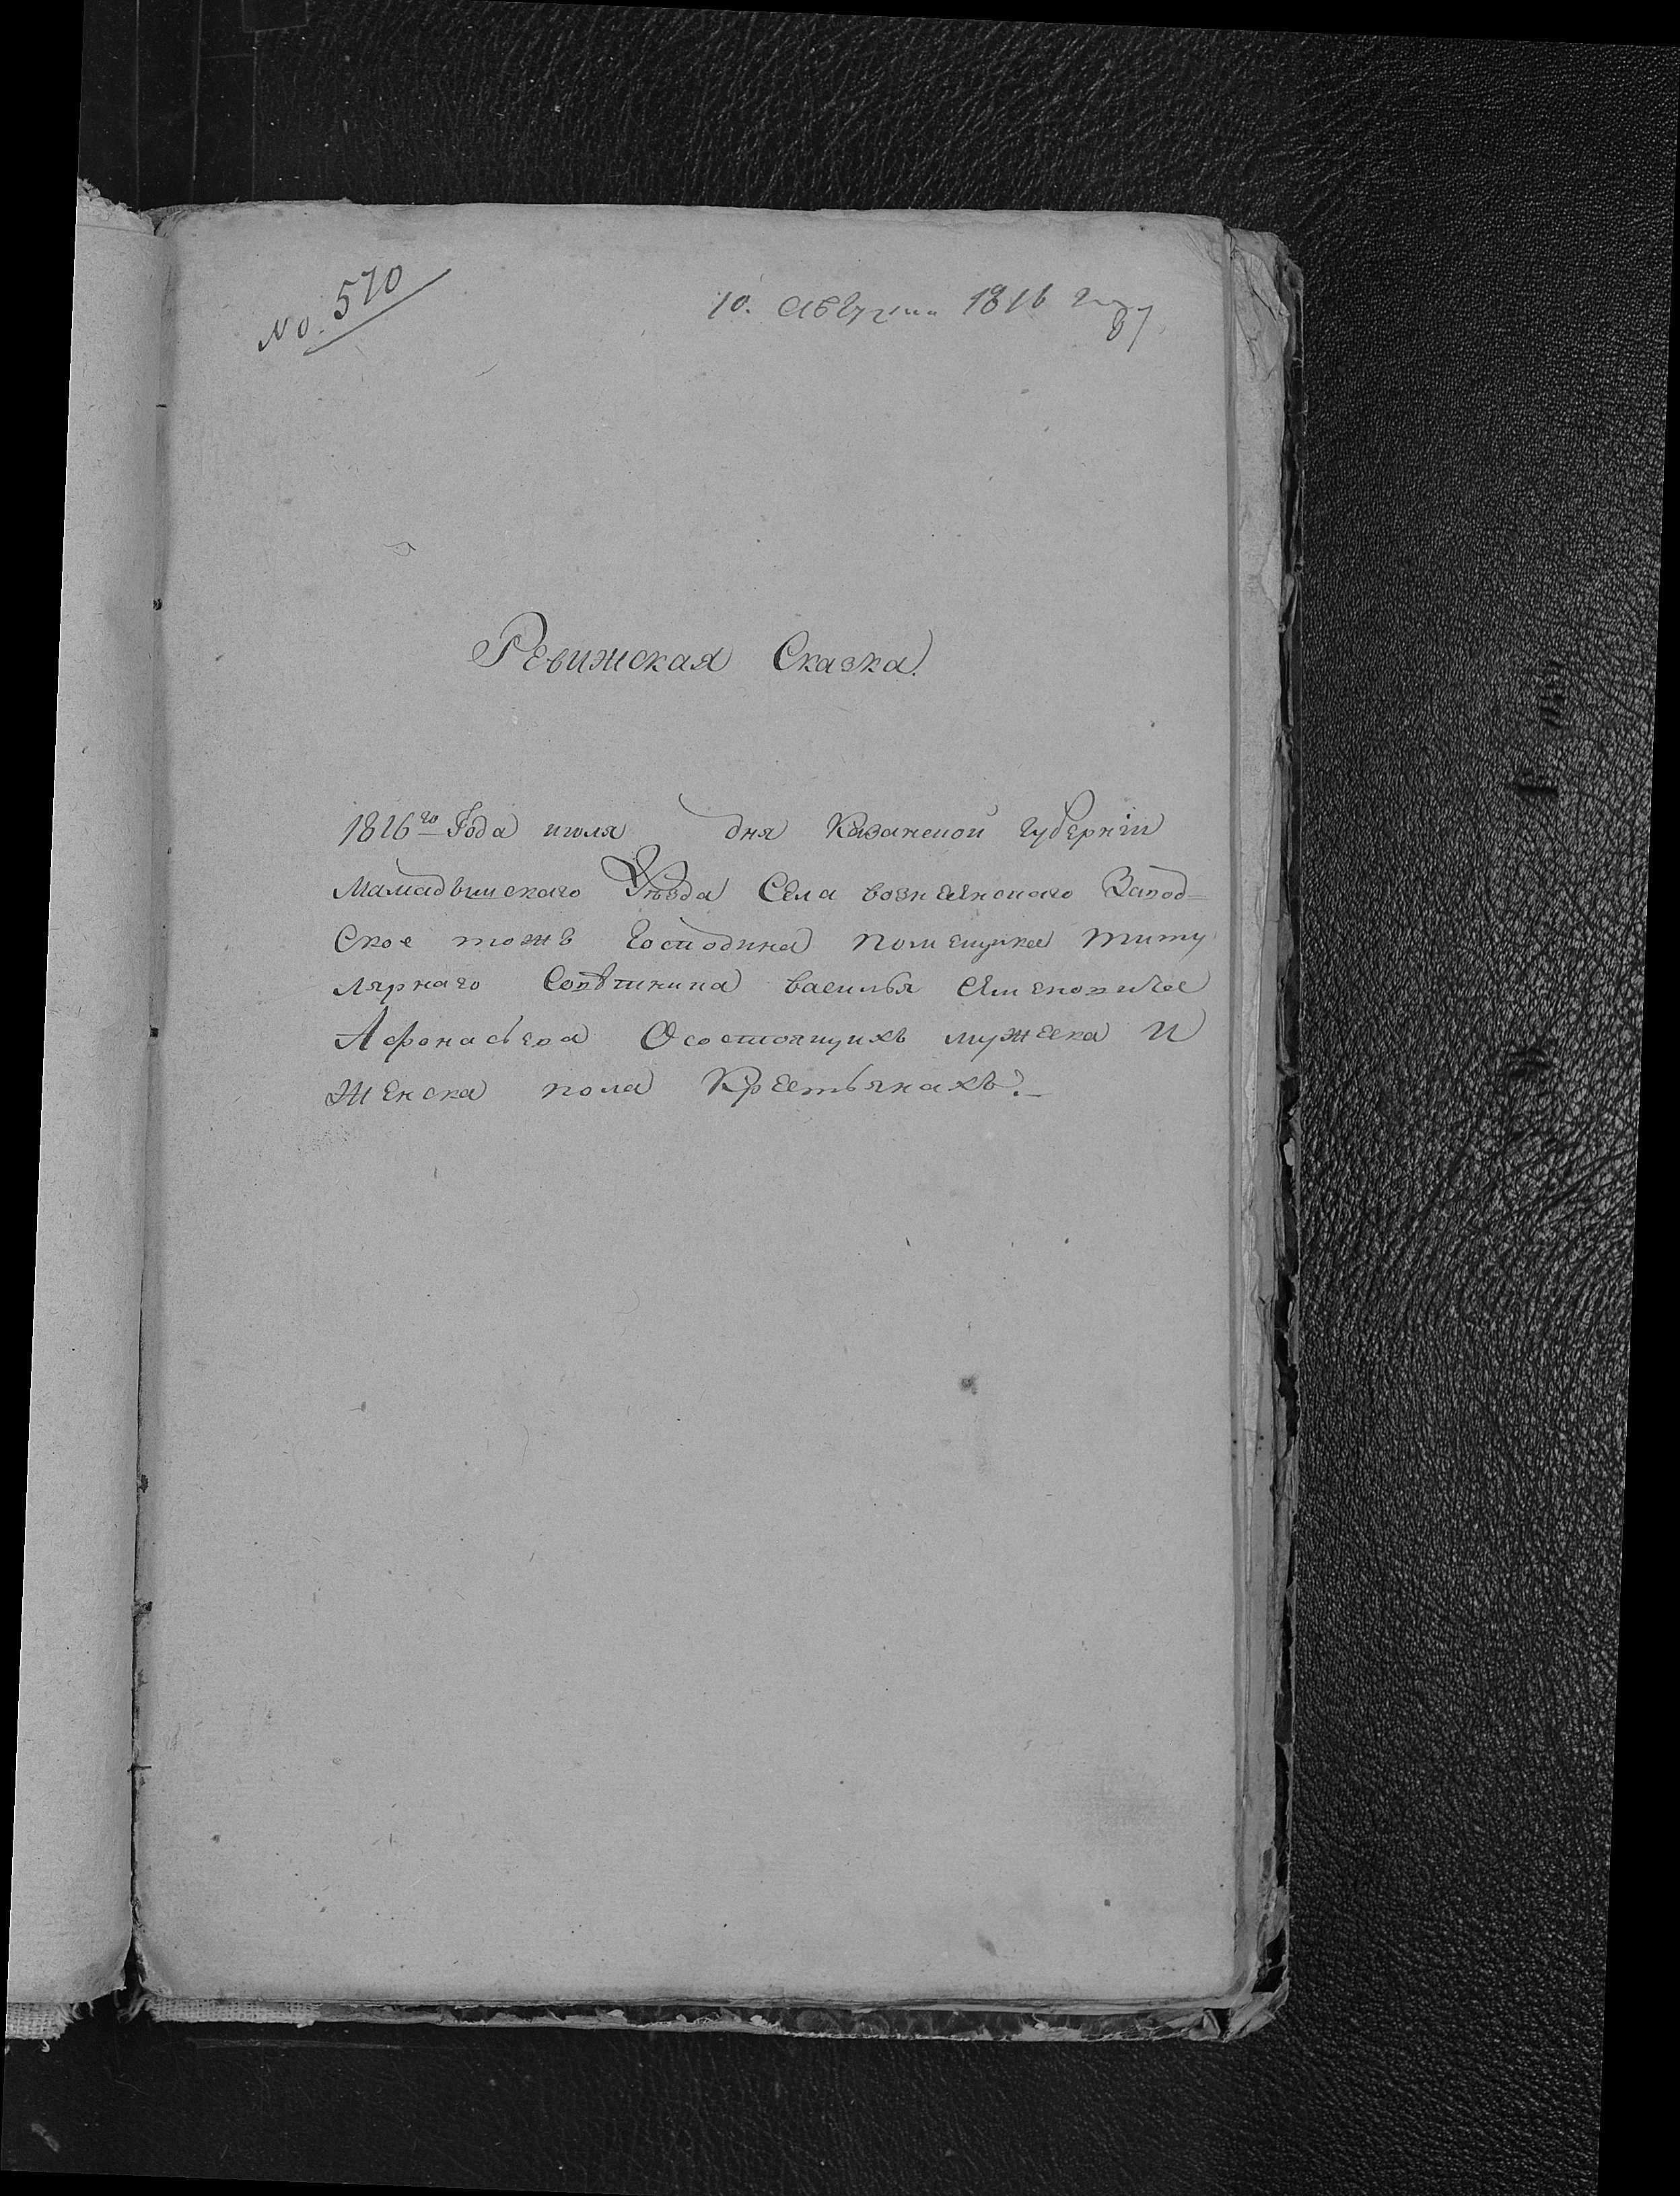 No. 570
10. Августа 1816 года
87
Ревижская Сказка.
1816го Года июля дня Казанской губерніи
Мамадышскаго Уѣзда Села вознесенскаго Завод=
ское тожъ Господина помещика титу
лярнаго Совѣтника василья Семеновича
Афонасьева Осостоящихъ мужеска и
женска пола Крестьянахъ.